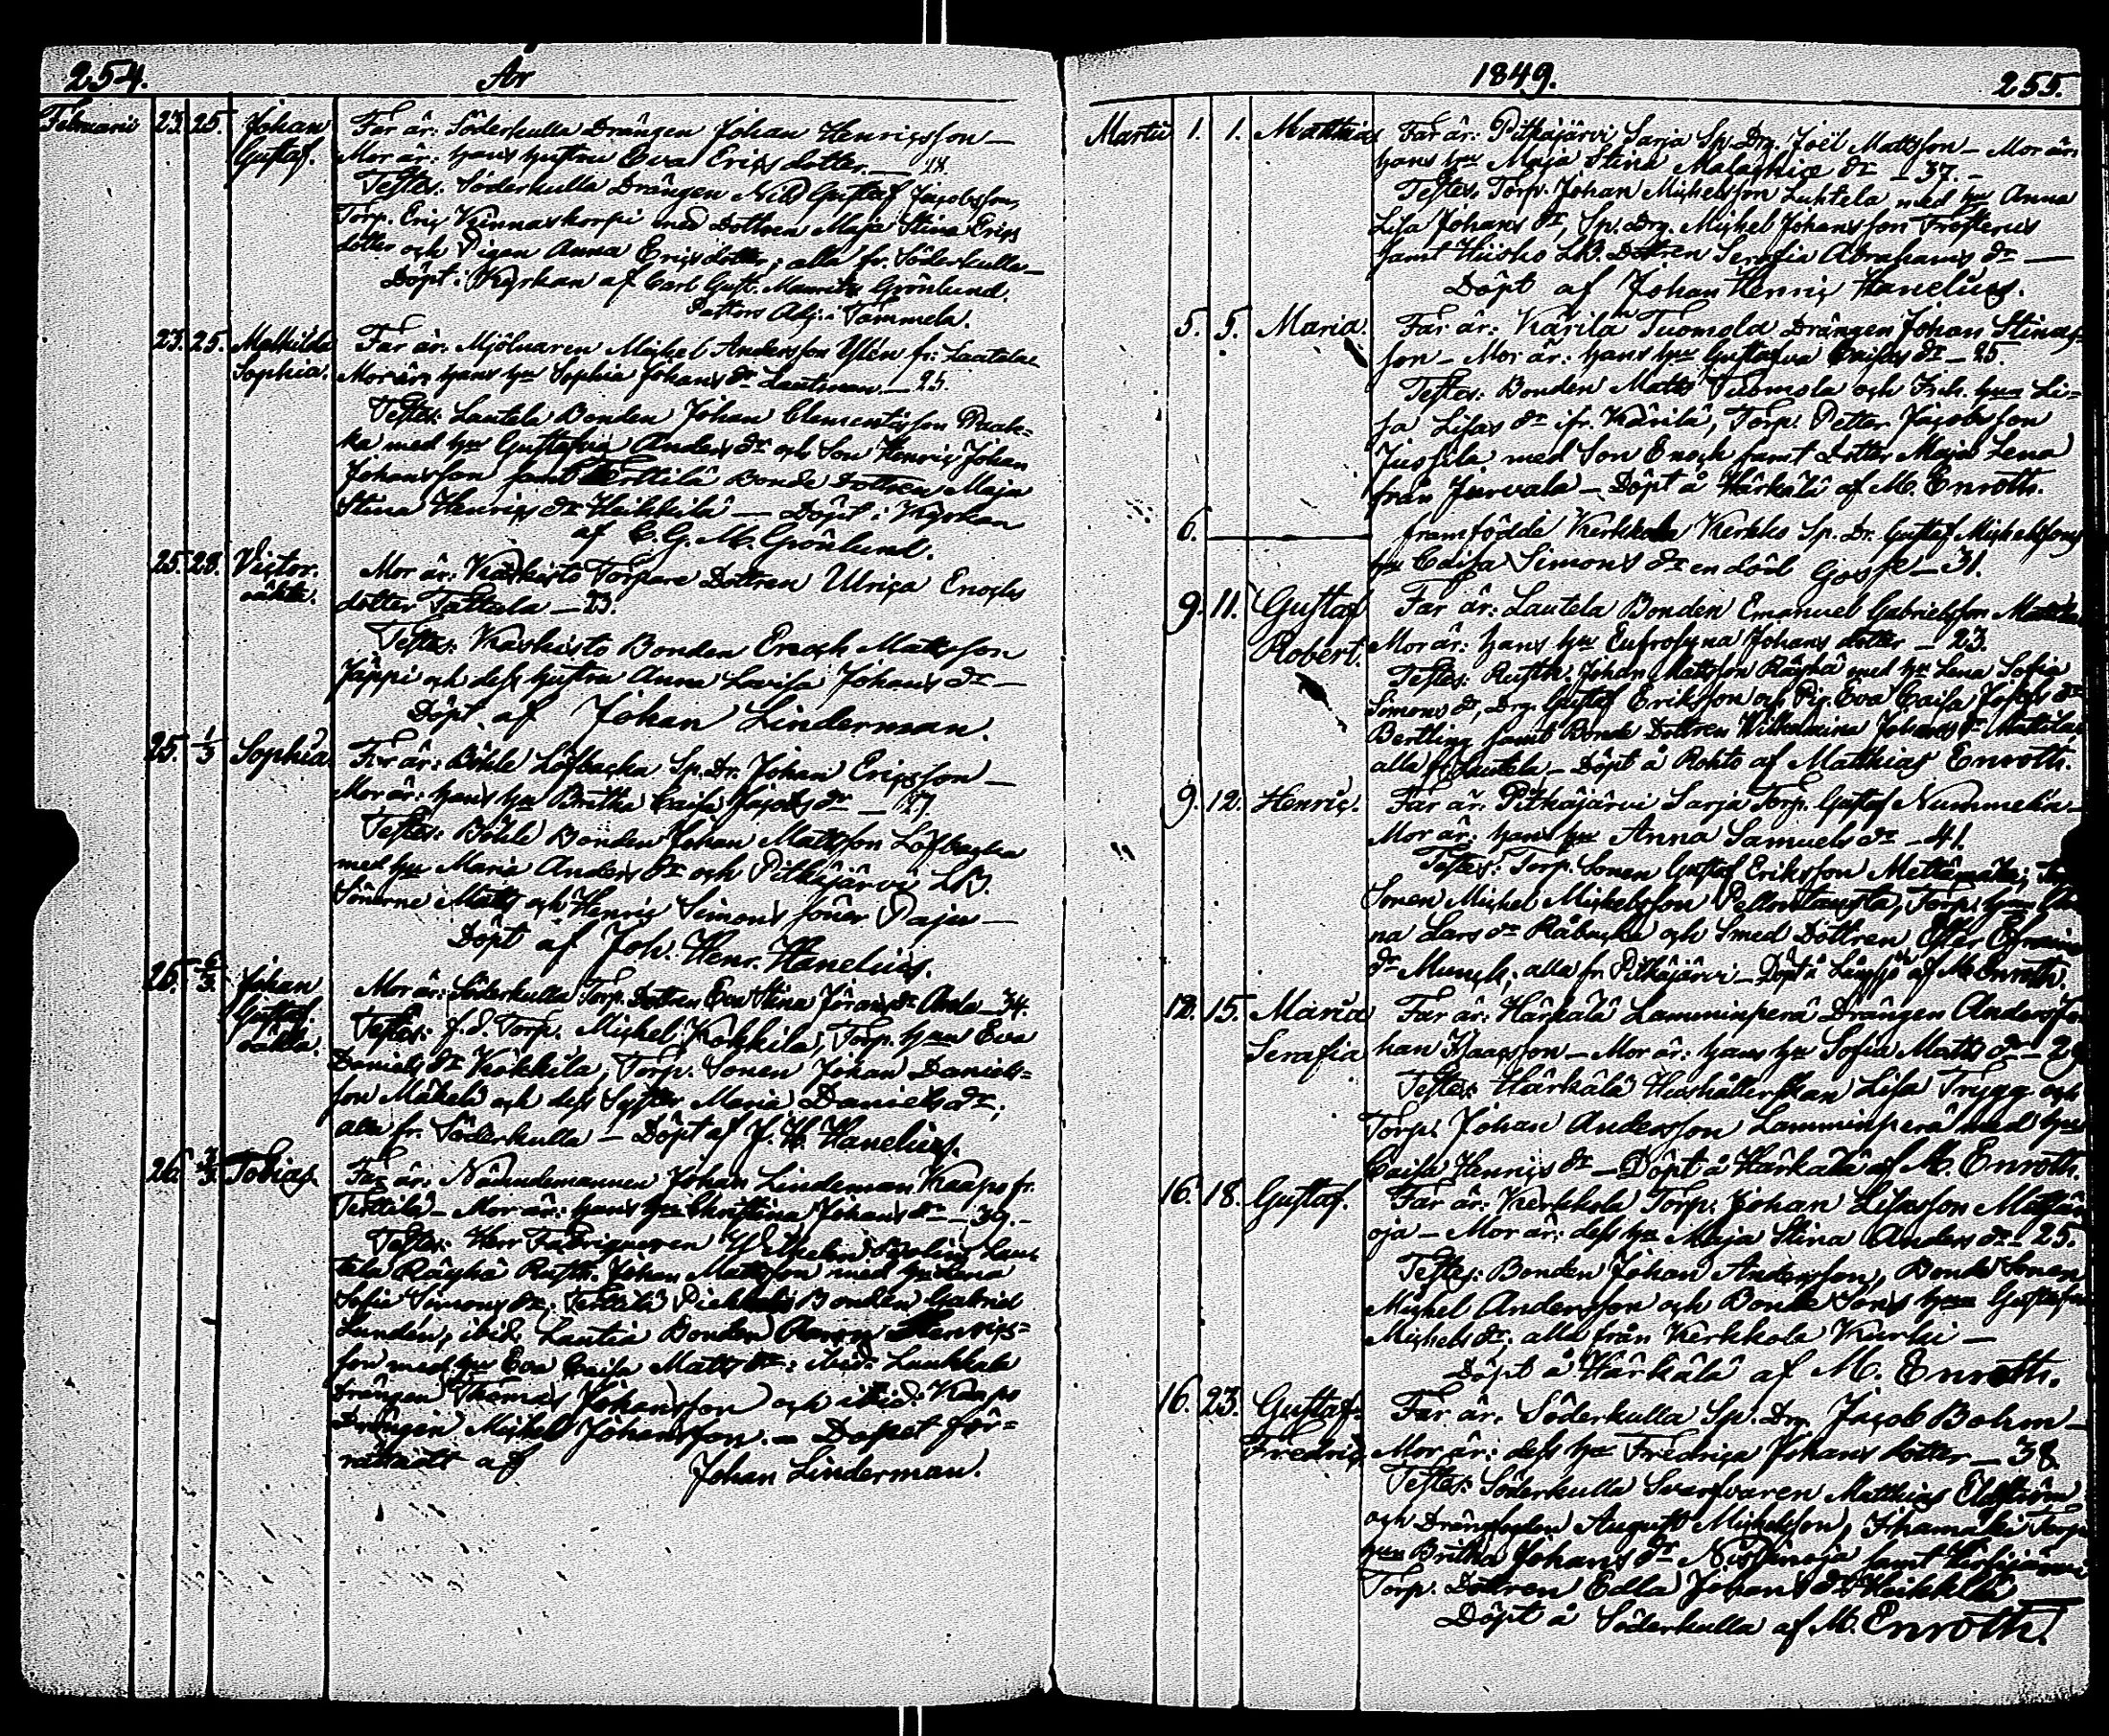 254. År
Februarii 23. 25. Johan Far är: Söderkulla Drängen Johan Henricsson —
Gustaf. Mor är: hans hustru Eva Erics dotter. —
Testes: Söderkulla Drängen Nils Gustaf Jacobsson,
Torp. Eric Kinnaskorpi med Dottren Maja Stina Erics
dotter och Pigan Anna Ericsdotter; alla fr. Söderkulla —
Döpt i Kyrkan af Carl Gust. Maurits Grönlund.
Pastors Adj. i Tammela.
23. 25. Mathilda Far är: Mjölnaren Michel Andersson Ylén fr.
Sophia. Mor är: hans hu Sophia Johans dr — 25.
Testes: Lautela Bonden Johan Clementsson Paak-
ka med hu Gustafva Anders dr och Son Henric Johan
Johansson samt Terttilä Bonde Dottren Maja
Stina Henrics dr Heikkilä — Döpt i Kyrkan
af C. G. M. Grönlund.
25. 28. Victor. Mor är: Kaskisto Torpare Dottren Ulrica Enochs
oäkta. dotter Tattala — 23.
Testes: Kaskisto Bonden Enoch Mattsson
Jäppi och dess hustru Anna Lovisa Johans dr —
Döpt af Johan Linderman.
25. 1/3 Sophia. Far är: Böhle Löfbacka Sp. Dr. Johan Ericsson —
Mor är: hans hu Britha Caisa Jacobs dr — 27
Testes: Böhle Bonden Johan Mattsson Löfbacka
med hu Maria Anders dr och Pitkäjärvi LB.
Sönerne Matts och Henric Simons söner Paju —
Döpt af Joh. Henr. Hanelius.
26. Johan Mor är: Söderkulla Torp. Dottren Eva Stina Jörans dr — 34.
Gustaf. Testes: f. d. Torp. Michel Kokkila, Torp. hun Eva
oäkta. Daniels dr Kokkila, Torp. Sonen Johan Daniels-
son Mäkelä och dess Syster Maria Daniels dr;
alla fr. Söderkulla — Döpt af J. H. Hanelius.
26. Tobias Far är: Nämndemannen Johan Lindeman Kaapo fr.
Terttilä — Mor är: hans hu Christina Johans dr — 39. —
Testes: Herr Fabriqueuren Wilhelm Lau-
tela Räyskä Rusth. Johan Mattsson med hu Lena
Sofia Simons dr; Terttilä Bonden Gabriel
Lundén, ibid. Lautia Bonden Henrics-
son med hu Eva Caisa Matts dr; ibid. Laukkala
drängen Thomas Johansson och ibid. Kaapo
Drängen Michel Johansson. — Dopet för-
rättadt af Johan Linderman.
1849. 255.
Martii 1. 1. Matthias Far är: Pitkäjärvi Sarja Sp. Drg. Joël Mattsson — Mor är:
hans hu Maja Stina Malachiæ dr — 37. —
Testes: Torp. Johan Michelsson Luhtela med hu Anna
Lisa Johans dr, Sp. Drg. Michel Johansson Frosterus
samt Huisko LB. Dottren Serafia Abrahams dr —
Döpt af Johan Henric Hanelius.
5. 5. Maria. Far är: Kärilä Tuomola Drängen Johan Stinas-
son — Mor är: hans hu Gustafva Caisas dr — 25.
Testes: Bonden Matts Tuomola och Inh. hun Li-
sa Lisas dr fr. Kärilä, Torp. Petter Jacobsson
Jussila med Son Enoch samt Dotter Maja Lena
från Jurvala — Döpt å Härkälä af M. Enroth.
6. — framfödde Kerkkola Kerkko Sp. Dr. Gustaf Michelssons
hu Caisa Simons dr en död Gosse — 31.
9. 11. Gustaf Far är: Lautela Bonden Emanuel Gabrielsson
Robert. Mor är: hans hu Eufrosyna Johans dotter — 23.
Testes: Rusth. Johan Mattsson Räyskä med hu Lena Sofia
Simons dr, Drg. Gustaf Eriksson och Pig. Eva Caisa Josefs dr
Bertling samt Bonde Dottren Wilhelmina Johans dr
alla fr. Lautela — Döpt å Rohto af Matthias Enroth.
9. 12. Henric. Far är: Pitkäjärvi Sarja Torp. Gustaf Nummelin —
Mor är: hans hu Anna Samuels dr — 41.
Testes: Torp. Sonen Gustaf Eriksson Mettämäki;
Sonen Michel Michelsson Pellontausta, Torp. hun
na Lars dr Råbacka och Smed Dottren Ester Efraims
dr Munck; alla fr. Pitkäjärvi — Döpt å af M. Enroth.
12. 15. Maria Far är: Härkälä Lamminperä Drängen Anders Jo
Serafia han Isaacsson — Mor är: hans hu Sofia Matts dr — 29
Testes: Härkälä Hushållerskan Lisa Trygg och
Torp. Johan Andersson Lamminperä med hu
Caisa Henrics dr — Döpt å Härkälä af M. Enroth.
16. 18. Gustaf. Far är: Kerkkola Torp. Johan Lisasson
oja — Mor är: dess hu Maja Stina Anders dr — 25.
Testes: Bonden Johan Andersson, Bonde Sonen
Michel Andersson och Bonde Sons hun Gustafva
Michels dr; alla från Kerkkola Kurki —
Döpt å Härkälä af M. Enroth.
16. 23. Gustaf Far är: Söderkulla Sp. Drg. Jacob Bohm —
Fredric Mor är: dess hu Fredrica Johans dotter — 38
Testes: Söderkulla Svarfvaren Matthias
och Drängfogden August Michelsson, Ihamäki Torp.
hun Britha Johans dr Niskanoja samt
Torp. Dottren Edla Johans dr Heikkilä
Döpt å Söderkulla af M. Enroth.